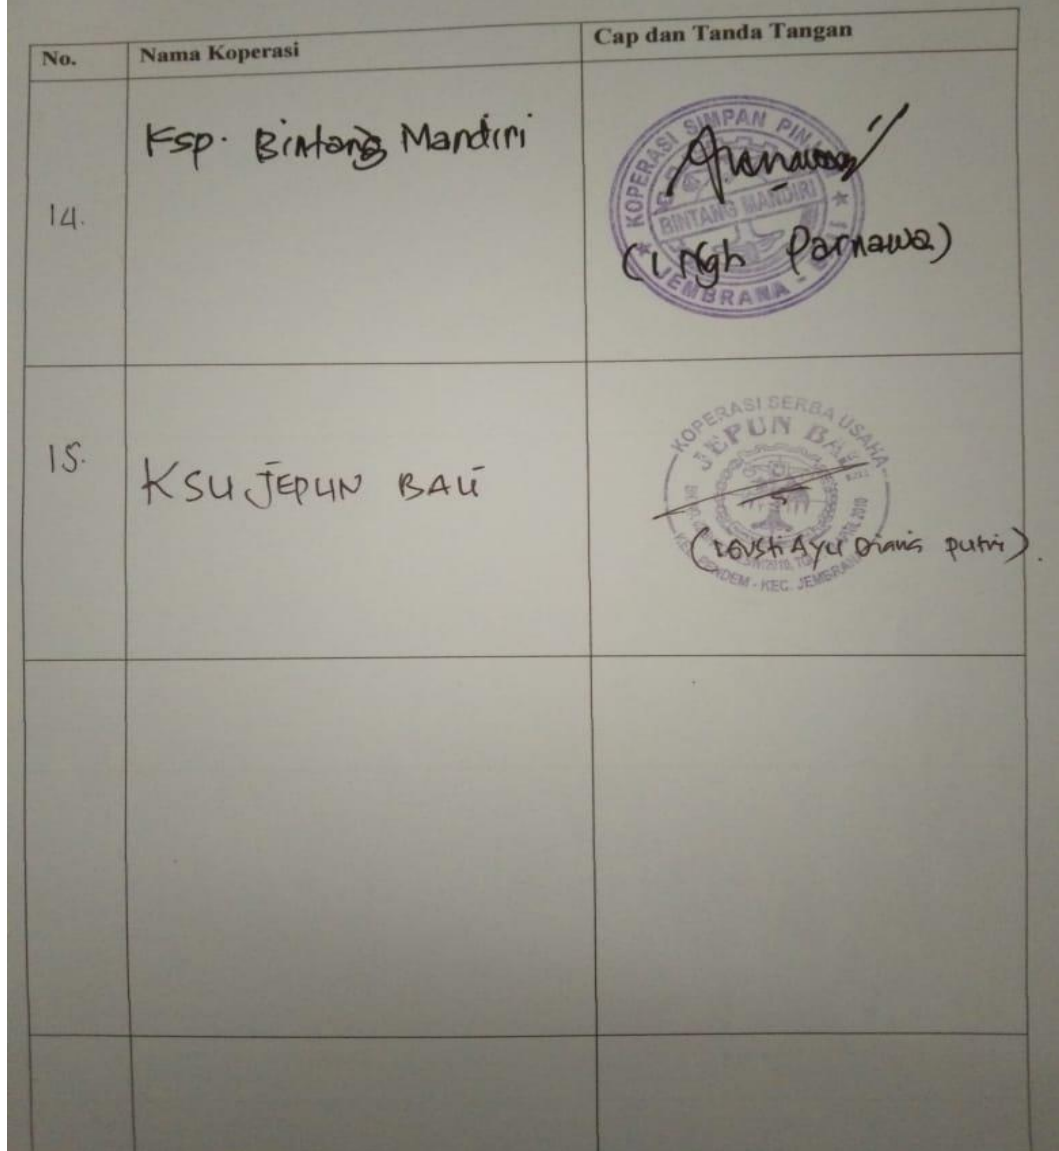 No. Nama Koperasi Cap dan Tanda Tangan
14. Ksp. Bintang Mandiri
KOPERASI SIMPAN PINJ
BINTANG MANDIRI
JEMBRANA - BALI
(I Ngh Parnawa)
15. KSU JEPUN BALI
KOPERASI SERBA USAHA
JEPUN BALI
(I Gusti Ayu Diana putri).
KEC. JEMBRANA